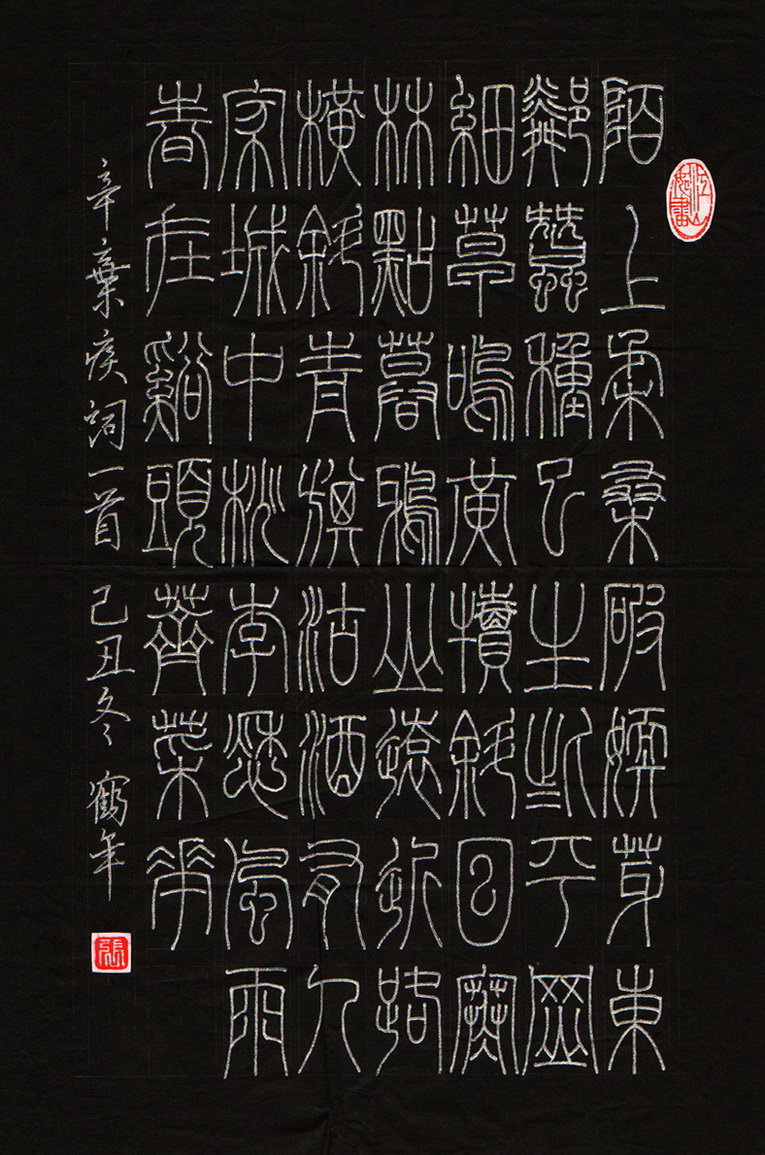 江山如畫
陌上柔桑破嫩芽東
鄰蠶種已生些平岡
細草鳴黃犢斜日寒
林點暮鴉山遠近路
橫斜青旗沽酒有人
家城中桃李愁風雨
春在谿頭薺菜花
辛棄疾詞一首 己丑冬 鶴年
張